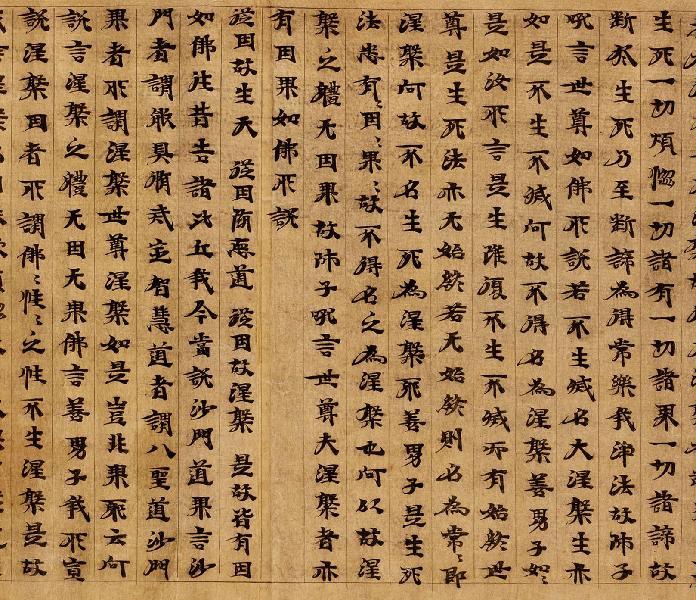 生死一切煩惱一切諸有一切諸果一切諸諦故
斷於生死乃至斷諦為得常樂我淨法故師子
吼言世尊如佛所說若不生滅名大涅槃生亦
如是不生不滅何故不得名為涅槃善男子如〻
是如汝所言是生雖復不生不滅而有始終世
尊是生死法亦无始終若无始終則名為常〻即
涅槃何故不名生死為涅槃耶善男子是生死
法悉有〻因〻果〻故不得名之為涅槃也何以故涅
槃之體无因果故師子吼言世尊夫涅槃者亦
有因果如佛所說
從因故生天 從因墮惡道 從因故涅槃 是故皆有因
如佛往昔告諸比丘我今當說沙門道果言沙
門者謂能具脩戒定智慧道者謂八聖道沙門
果者所謂涅槃世尊涅槃如是豈非果耶云何
說言涅槃之體无因无果佛言善男子我所宣
說涅槃因者所謂佛〻性〻之性不生涅槃是故